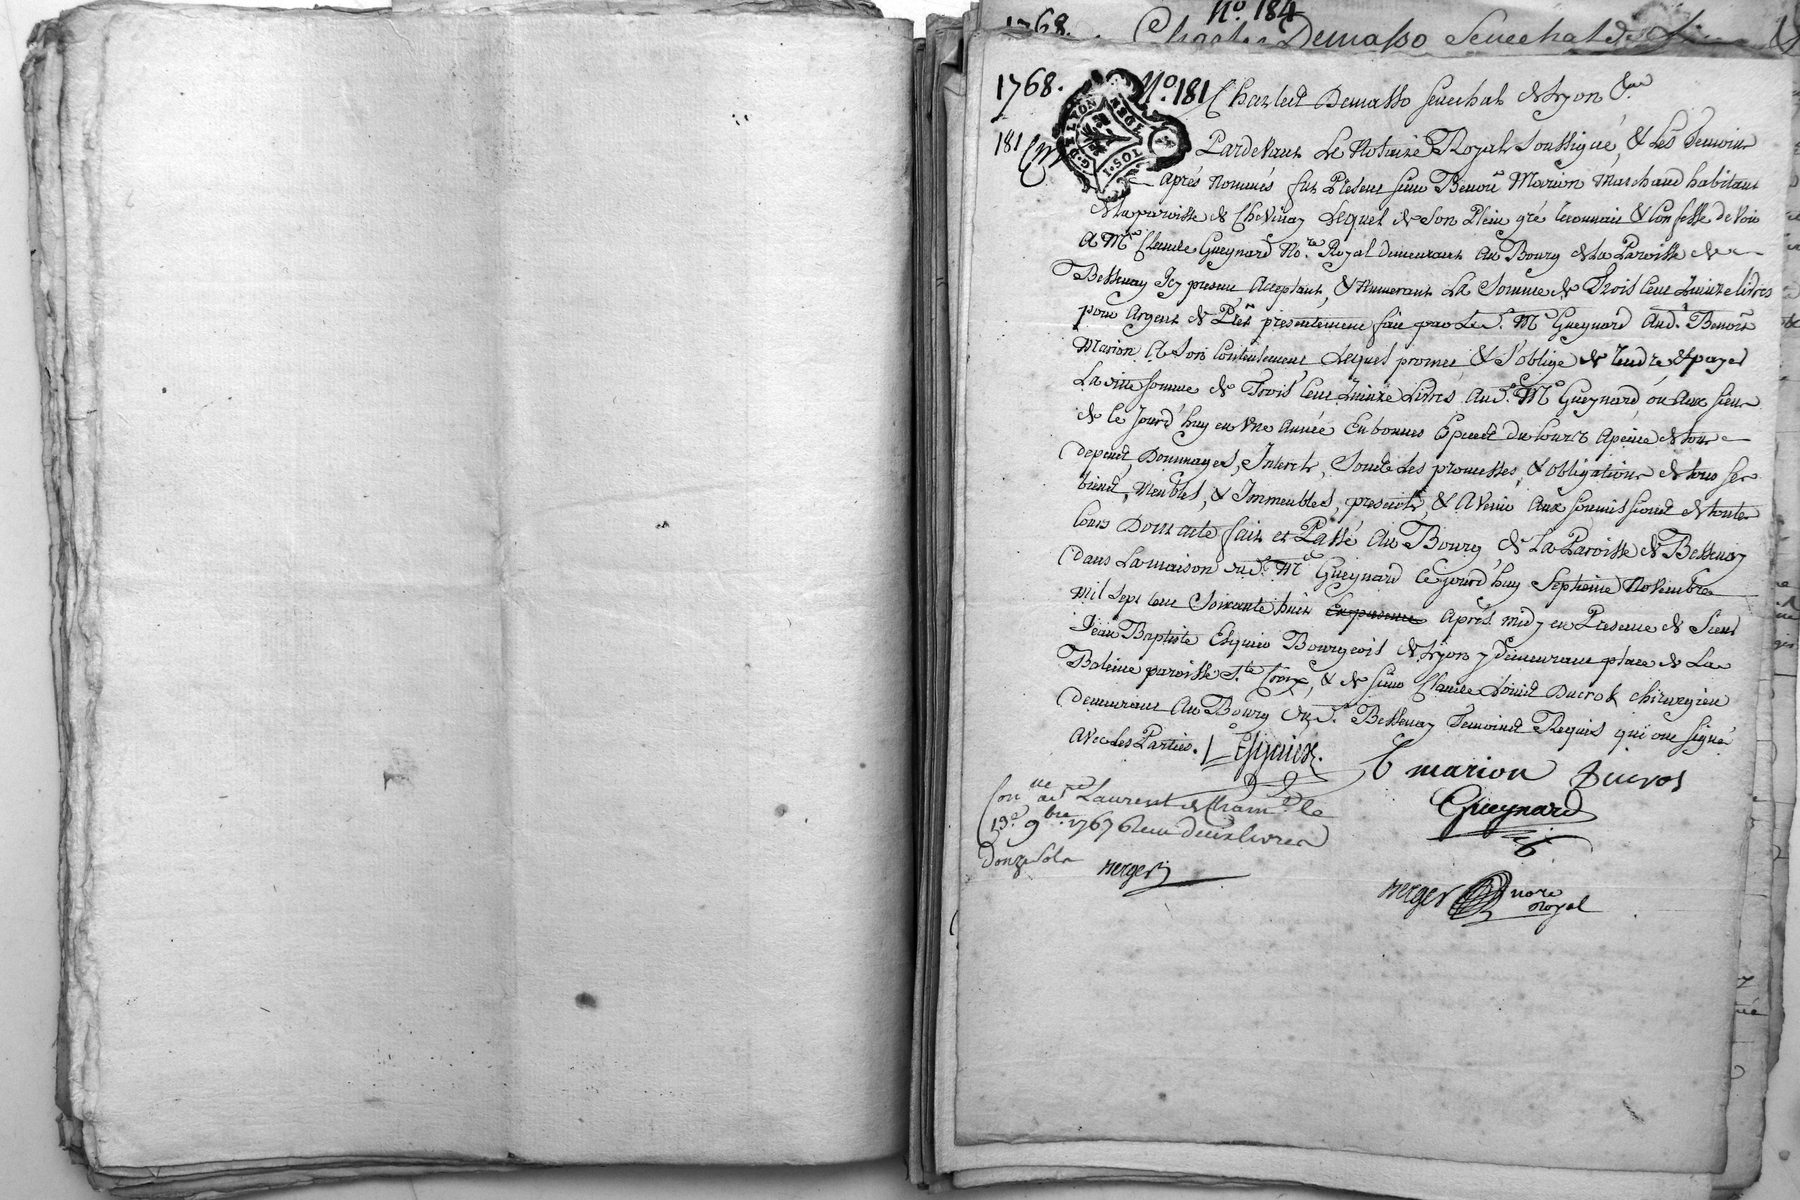 No. 184
1768. Charles Demasso Senechal de
1768. No. 181 Charles Demasso Senechal de Lyon &a
G. DE LYON
1. SOL
181
Pardevant Le Notaire Royal Soussigné, & Les Temoins
après nommés fut Present sieur Benoit Marion Marchand habitant
de la paroisse de Chevinay Lequel de Son Plein gré reconnait & Confesse devoir
A Me Claude Gueynard Nore. Royal demeurant Au Bourg de la Paroisse de
Bessenay Icy present Acceptant, & stipulant La Somme de Trois Cent Quinze livres
pour Argent de Prêt presentement fait par Led. Me Gueynard Aud. Benoit
Marion A Son Contentement Lequel promet & S'oblige de rendre & payer
La ditte somme de Trois Cent Quinze Livres Aud. Me Gueynard ou Aux siens
de Ce Jourd'huy en Une Année En bonnes Especes du Cours Apeine de tous
depens, Dommages, Interets, Sous Les promesses, & obligations de tous ses
biens, Meubles, & Immeubles, presents, & Avenir Aux soumissions de toutes
Cours Dont acte fait et Passé Au Bourg de La Paroisse de Bessenay
dans La maison dud. Me Gueynard Ce jourd'huy Septieme Novembre
mil sept cent Soixante huit Après midy en Presence de Sieur
Jean Baptiste Esquier Bourgeois de Lyon y demeurant place de La
Baleine paroisse Ste Croix, & de sieur Claude Louis Ducrot chirurgien
demeurant Au Bourg dud. Bessenay Temoins Requis qui ont signé
Avec Les Parties.
B marion Ducros
Gueynard
Conlle a St Laurent de Cham le
13e 9bre 1767 Reçu deux livres
Douze Sols nerger
nerger nore
Royal